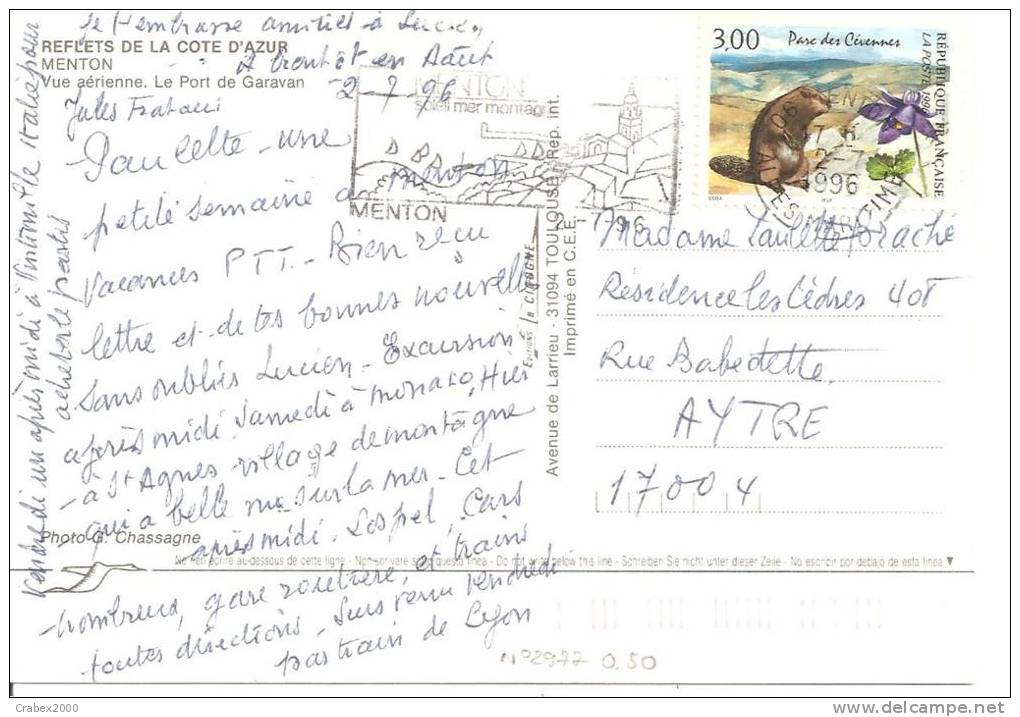 Je t'embrasse amitiés à Lucien
A bientôt en Août
REFLETS DE LA COTE D'AZUR
MENTON
Vue aérienne. Le Port de Garavan
2-7-96
Jules
Paulette - une
petite semaine à menton
Vacances PTT. - Bien reçu
lettre et de tes bonnes nouvelles
Sans oublier Lucien - Excursion
après midi Samedi à Monaco, Hier
- à St Agnes village de montagne
qui a belle vue sur la mer - Cet
après midi. Sospel, Cars
nombreux, gare routière, et trains
toutes directions. Suis venu Vendredi
par train de Lyon
Vendredi un après midi à Vintimille Italie pour
acheter le pastis
Photo G. Chassagne
MENTON
soleil mer montagne
MENTON
2-7-96
3,00
Parc des Cévennes
RÉPUBLIQUE FRANÇAISE
LA POSTE 1996
06 MENTON
17 H
2-7
1996
ALPES MARITIMES
EDITIONS LA CIGOGNE
Avenue de Larrieu - 31094 TOULOUSE Rep. int.
Imprimé en C.E.E.
Madame Paulette Braché
Résidence les Cèdres 408
Rue Babedette
AYTRE
17004
Ne rien écrire au-dessous de cette ligne - Non scrivere sotto questa linea - Do not write below this line - Schreiben Sie nicht unter dieser Zeile - No escribir por debajo de esta linea
N°2977 0,50
Crabex2000
www.delcampe.net